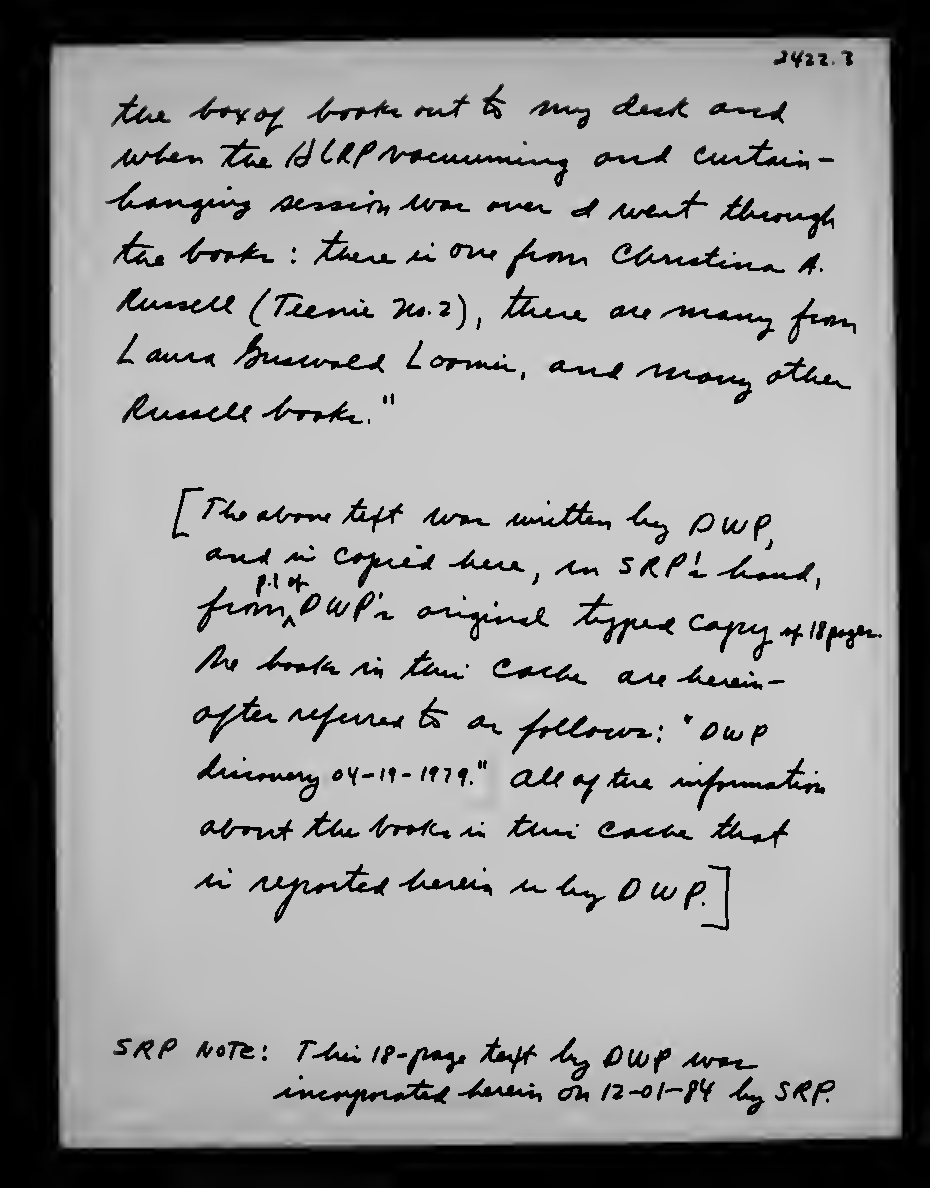 3422.3
the box of books out to my desk and
when the HLRP vacuuming and curtain-
hanging session was over I went through
the books: there is one from Christina A.
Russell (Teenie No. 2), there are many from
Laura Griswold Loomis, and many other
Russell books."
[The above text was written by DWP,
and is copied here, in SRP's hand,
p.1 of
from ^ DWP's original typed copy of 18 pages.
The books in this cache are herein-
after referred to as follows: "DWP
discovery 04-19-1979." All of the information
about the books in this cache that
is reported herein is by DWP.]
SRP NOTE: This 18-page text by DWP was
incorporated herein on 12-01-84 by SRP.